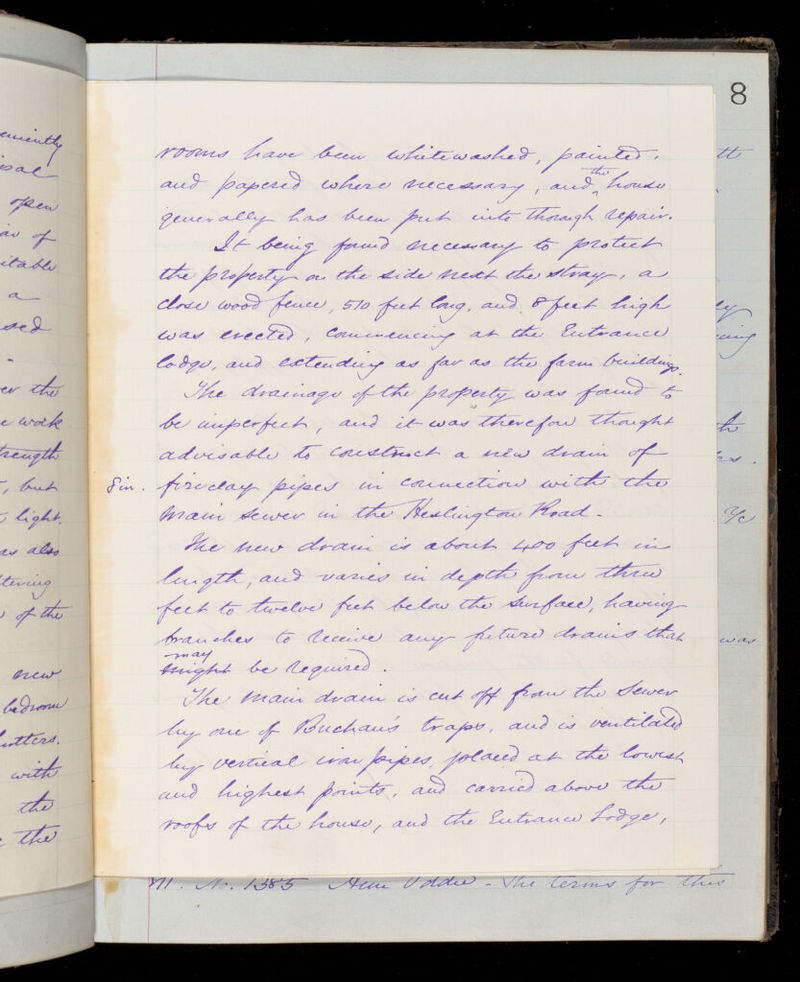 8
rooms have been whitewashed, painted,
and papered where necessary, and the house
generally has been put into thorough repair.
It being found necessary to protect
the property on the side next the stray, a
close wood fence, 510 feet long, and 8 feet high
was erected, commencing at the Entrance
lodge, and extending as far as the farm buildings.
The drainage of the property was found to
be imperfect, and it was therefore thought
advisable to construct a new drain of
8 in. fireclay pipes in connection with the
main sewer in the Heslington Road.
The new drain is about 400 feet in
length, and varies in depth from three
feet to twelve feet below the surface, having
branches to receive any future drains that
may
might be required.
The main drain is cut off from the Sewer
by one of Buchan's traps, and is ventilated
by vertical iron pipes, placed at the lowest
and highest points, and carried above the
roofs of the house, and the Entrance Lodge,
No. 1385 Ann Oddie - The terms for this
open
of
a
the
work
but
light.
as also
of the
new
bedroom
with
the
the
was